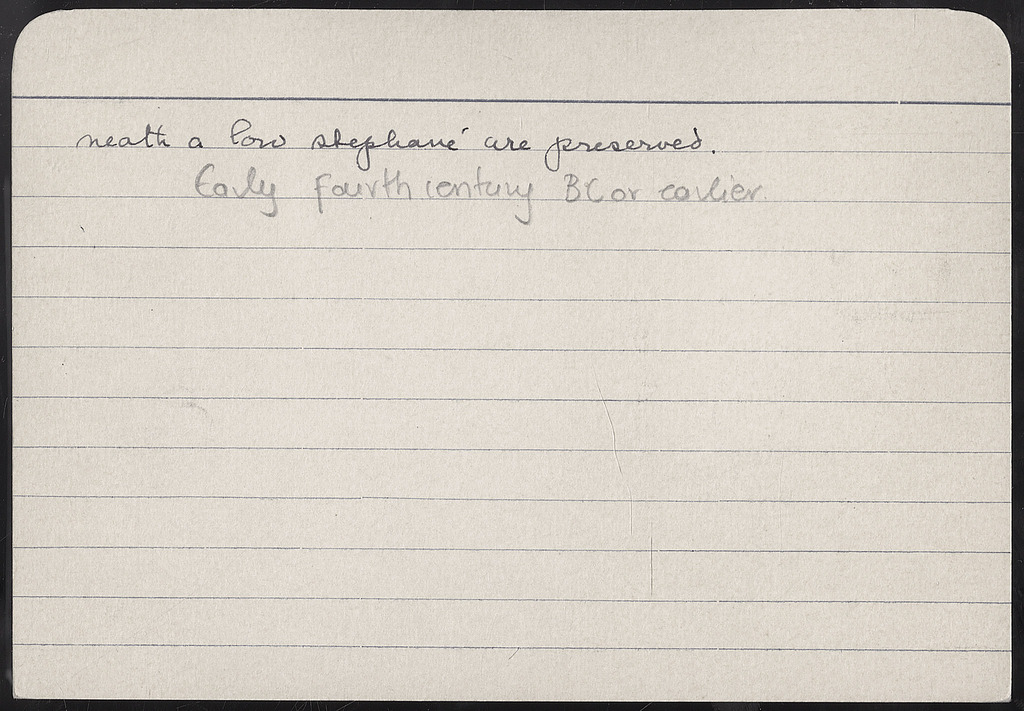 neath a low stephané are preserved.
Early fourth century BC or earlier.